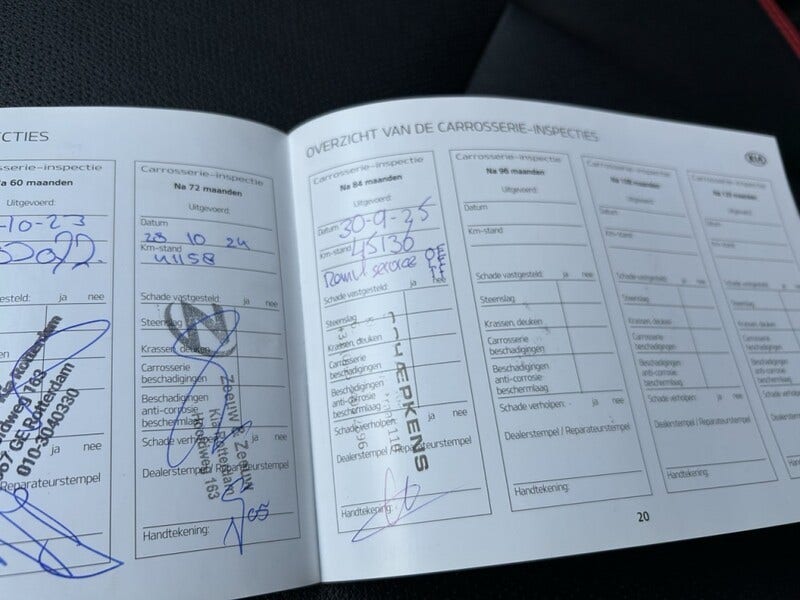 CTIES
sserie-inspectie
a 60 maanden
Uitgevoerd:
-10-23
geld: ja nee
ndweg 163
GE Rotterdam
010-3040330
ja nee
Reparateurstempel
Carrosserie-inspectie
Na 72 maanden
Uitgevoerd:
Datum
28 10 24
Km-stand
41158
Schade vastgesteld: ja nee
Steenslag
Krassen, deuken
Carrosserie
beschadigingen
Beschadigingen
anti-corrosie
beschermlaag
Schade verholpen: ja nee
Dealerstempel / Reparateurstempel
Zeeuw & Zeeuw
Kia Rotterdam
Hoofdweg 163
Handtekening:
OVERZICHT VAN DE CARROSSERIE-INSPECTIES
KIA
Carrosserie-inspectie
Na 84 maanden
Uitgevoerd:
Datum 30-9-25
Km-stand 45136
service
Schade vastgesteld: ja nee
Steenslag
Krassen, deuken
Carrosserie
beschadigingen
Beschadigingen
anti-corrosie
beschermlaag
Schade verholpen: ja nee
Dealerstempel / Reparateurstempel
Handtekening:
Carrosserie-inspectie
Na 96 maanden
Uitgevoerd:
Datum
Km-stand
Schade vastgesteld: ja nee
Steenslag
Krassen, deuken
Carrosserie
beschadigingen
Beschadigingen
anti-corrosie
beschermlaag
Schade verholpen: ja nee
Dealerstempel / Reparateurstempel
Handtekening:
Carrosserie-inspectie
Na 108 maanden
Uitgevoerd:
Datum
Km-stand
Schade vastgesteld: ja nee
Steenslag
Krassen, deuken
Carrosserie
beschadigingen
Beschadigingen
anti-corrosie
beschermlaag
Schade verholpen: ja nee
Dealerstempel / Reparateurstempel
Handtekening:
Carrosserie-inspectie
Na 120 maanden
Uitgevoerd:
Datum
Km-stand
Schade vastgesteld:
Steenslag
Krassen, deuken
Carrosserie
beschadigingen
Beschadigingen
anti-corrosie
beschermlaag
Schade
20